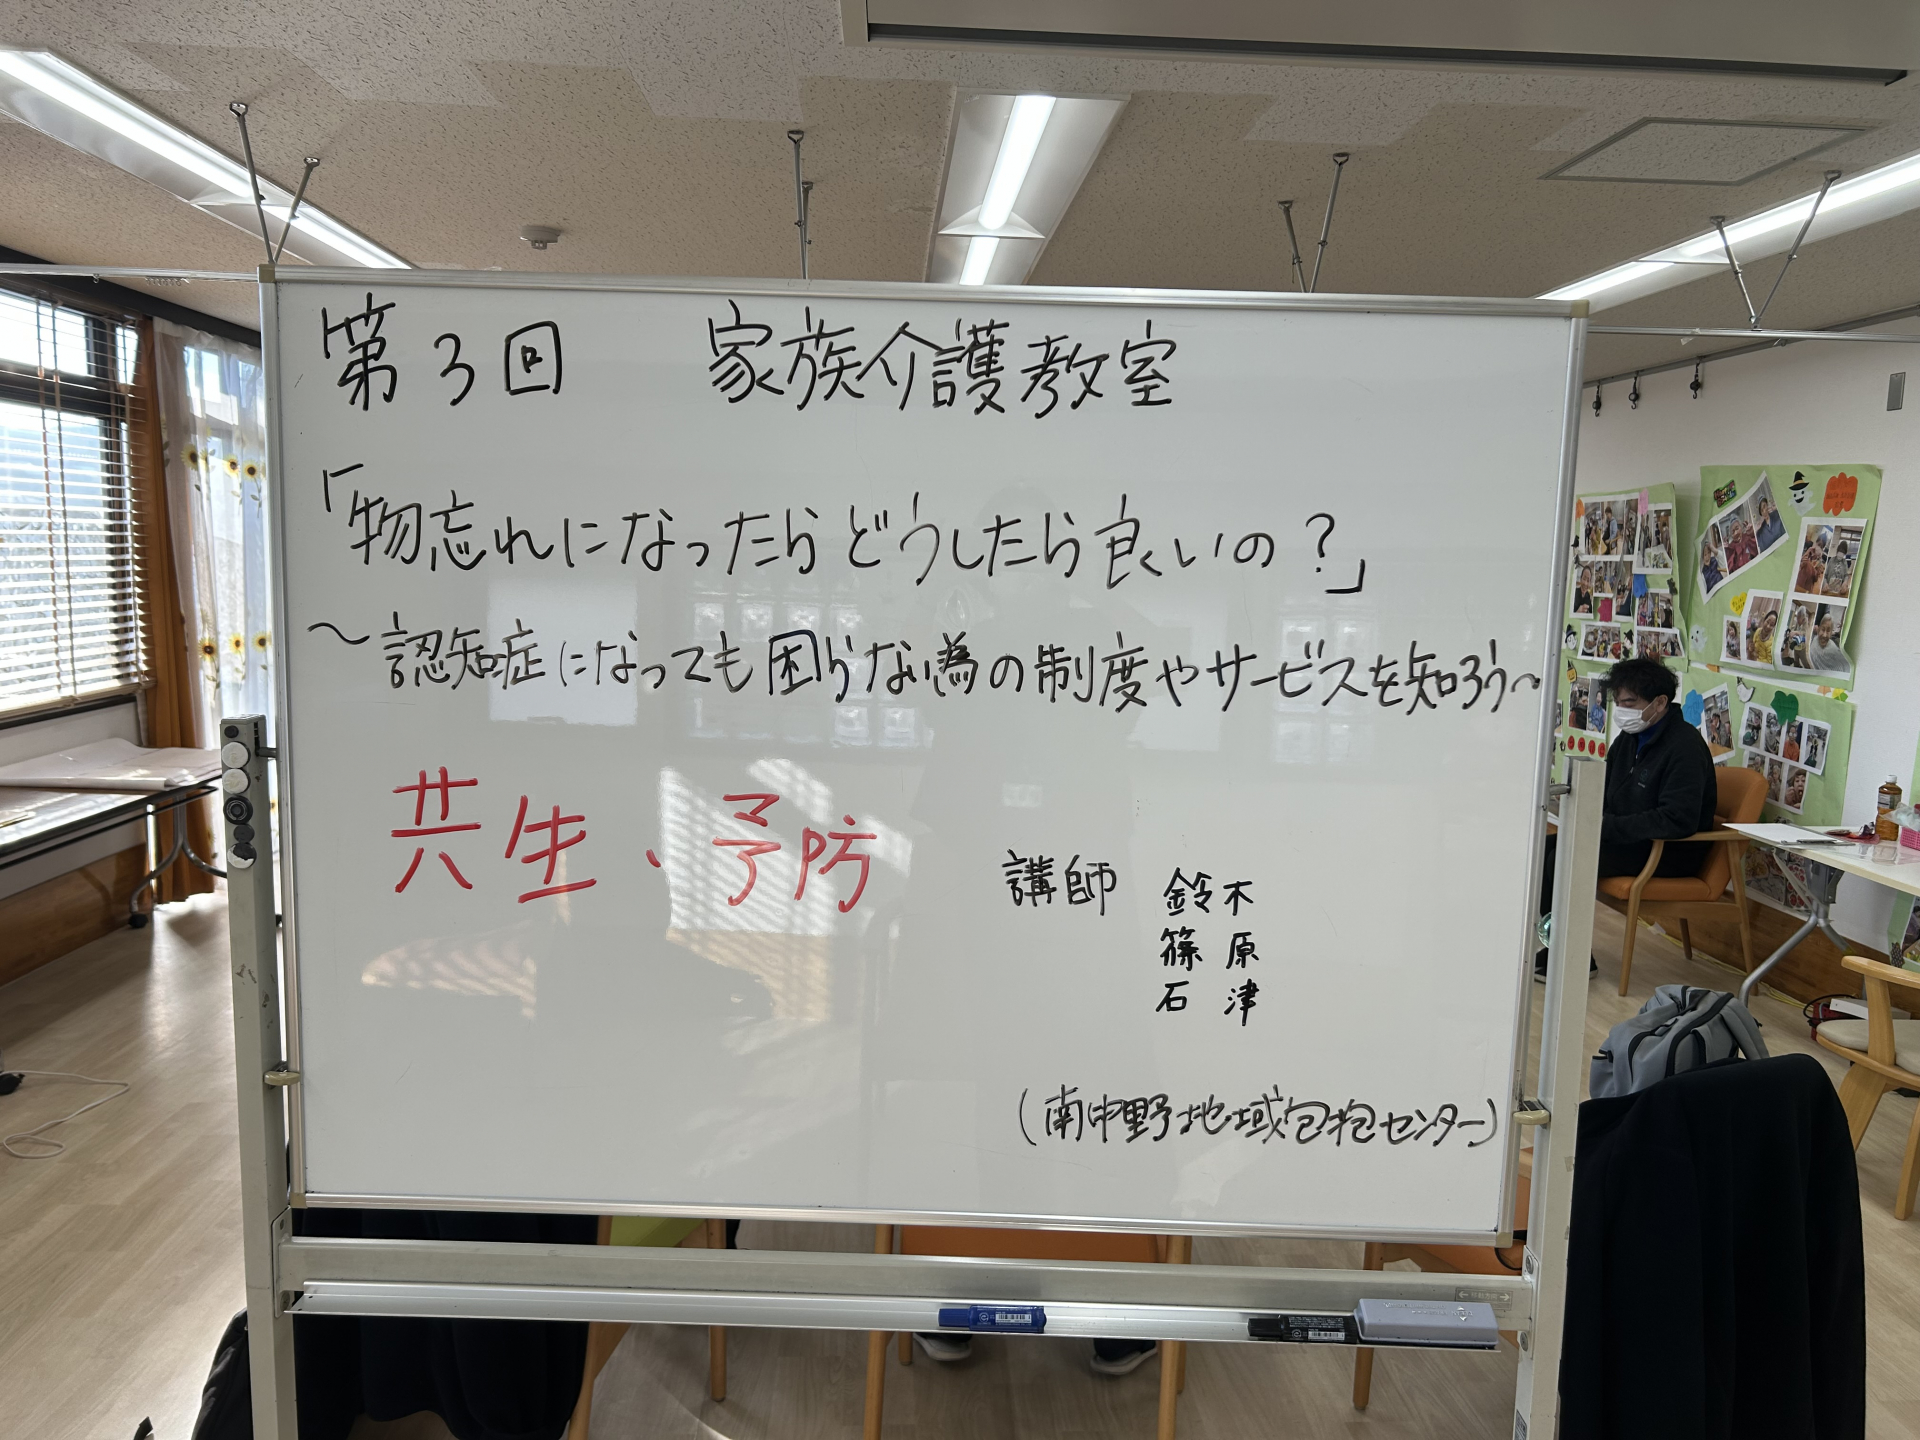 第3回 家族介護教室
「物忘れになったらどうしたら良いの？」
〜認知症になっても困らない為の制度やサービスを知ろう〜
共生・予防
講師 鈴木
篠原
石津
(南中野地域包括センター)